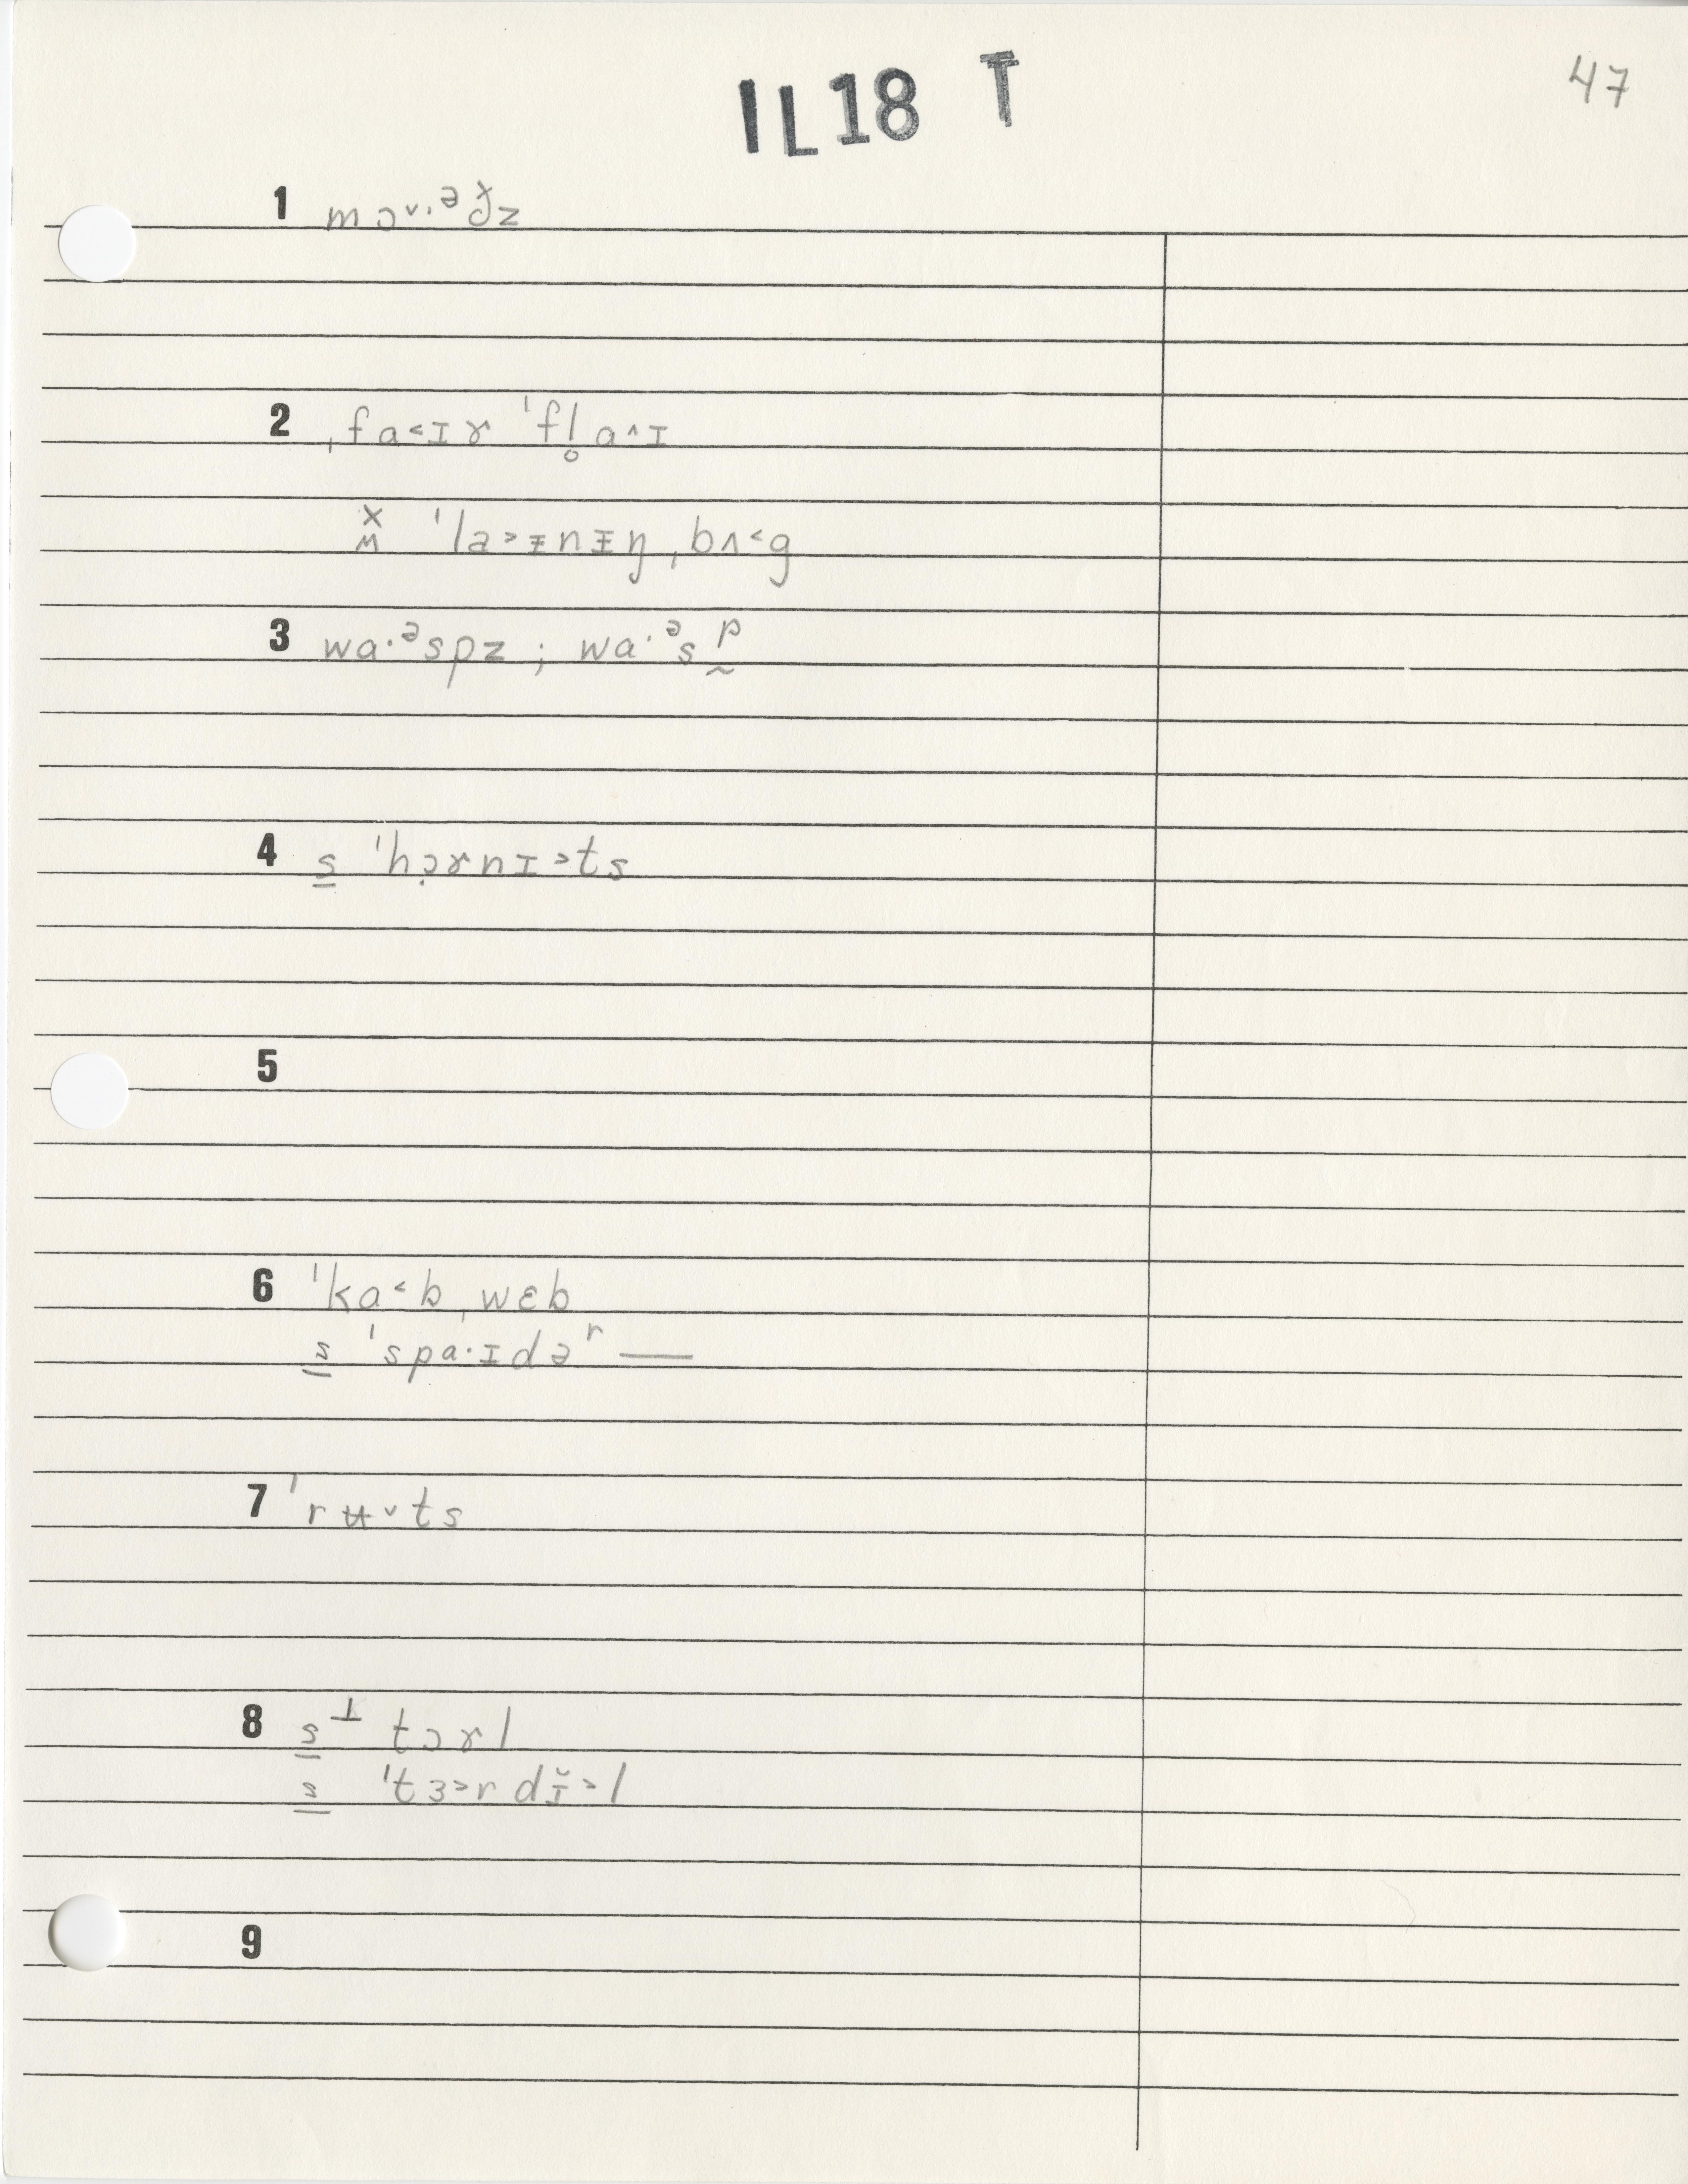 IL18 T
47
1 mɔ˅·ᵊð̌z
2 ˌfa˂ɪɤ ˈfl̥a˄ɪ
x̯ ˈla˃ᵻnᵻŋˌbʌ˂g
3 wa·ᵊspz ; wa·ᵊsp̰
4 s̲ ˈhɔ̣ɤnɪ˃ts
5
6 ˈka˂bˌwɛb
s̳ ˈspa·ɪdəʳ —
7 ˈrʉ˅ts
8 s̲ ⊥ tɔɤl
s̳ ˈtɜ˃rdɪ̆˃l
9